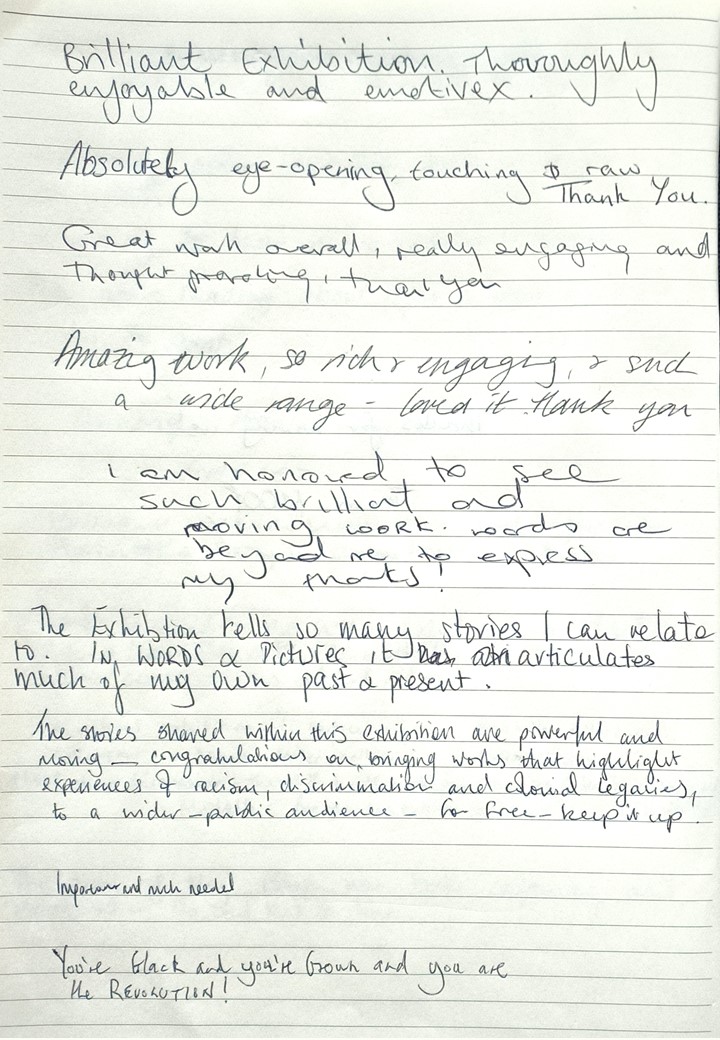 Brilliant Exhibition. Thoroughly
enjoyable and emotive x.
Absolutely eye-opening, touching & raw
Thank You.
Great work overall, really engaging and
Thought provoking, thank you
Amazing work, so rich & engaging, & such
a wide range - loved it. thank you
i am honored to see
such brilliant and
moving work. words are
beyond me to express
my thanks!
The Exhibition tells so many stories I can relate
to. IN WORDS & Pictures it articulates
much of my own past & present.
The stories shared within this exhibition are powerful and
moving — congratulations on bringing works that highlight
experiences of racism, discrimination and colonial legacies,
to a wider - public audience - for free - keep it up.
Important and much needed
You're black and you're brown and you are
the REVOLUTION!